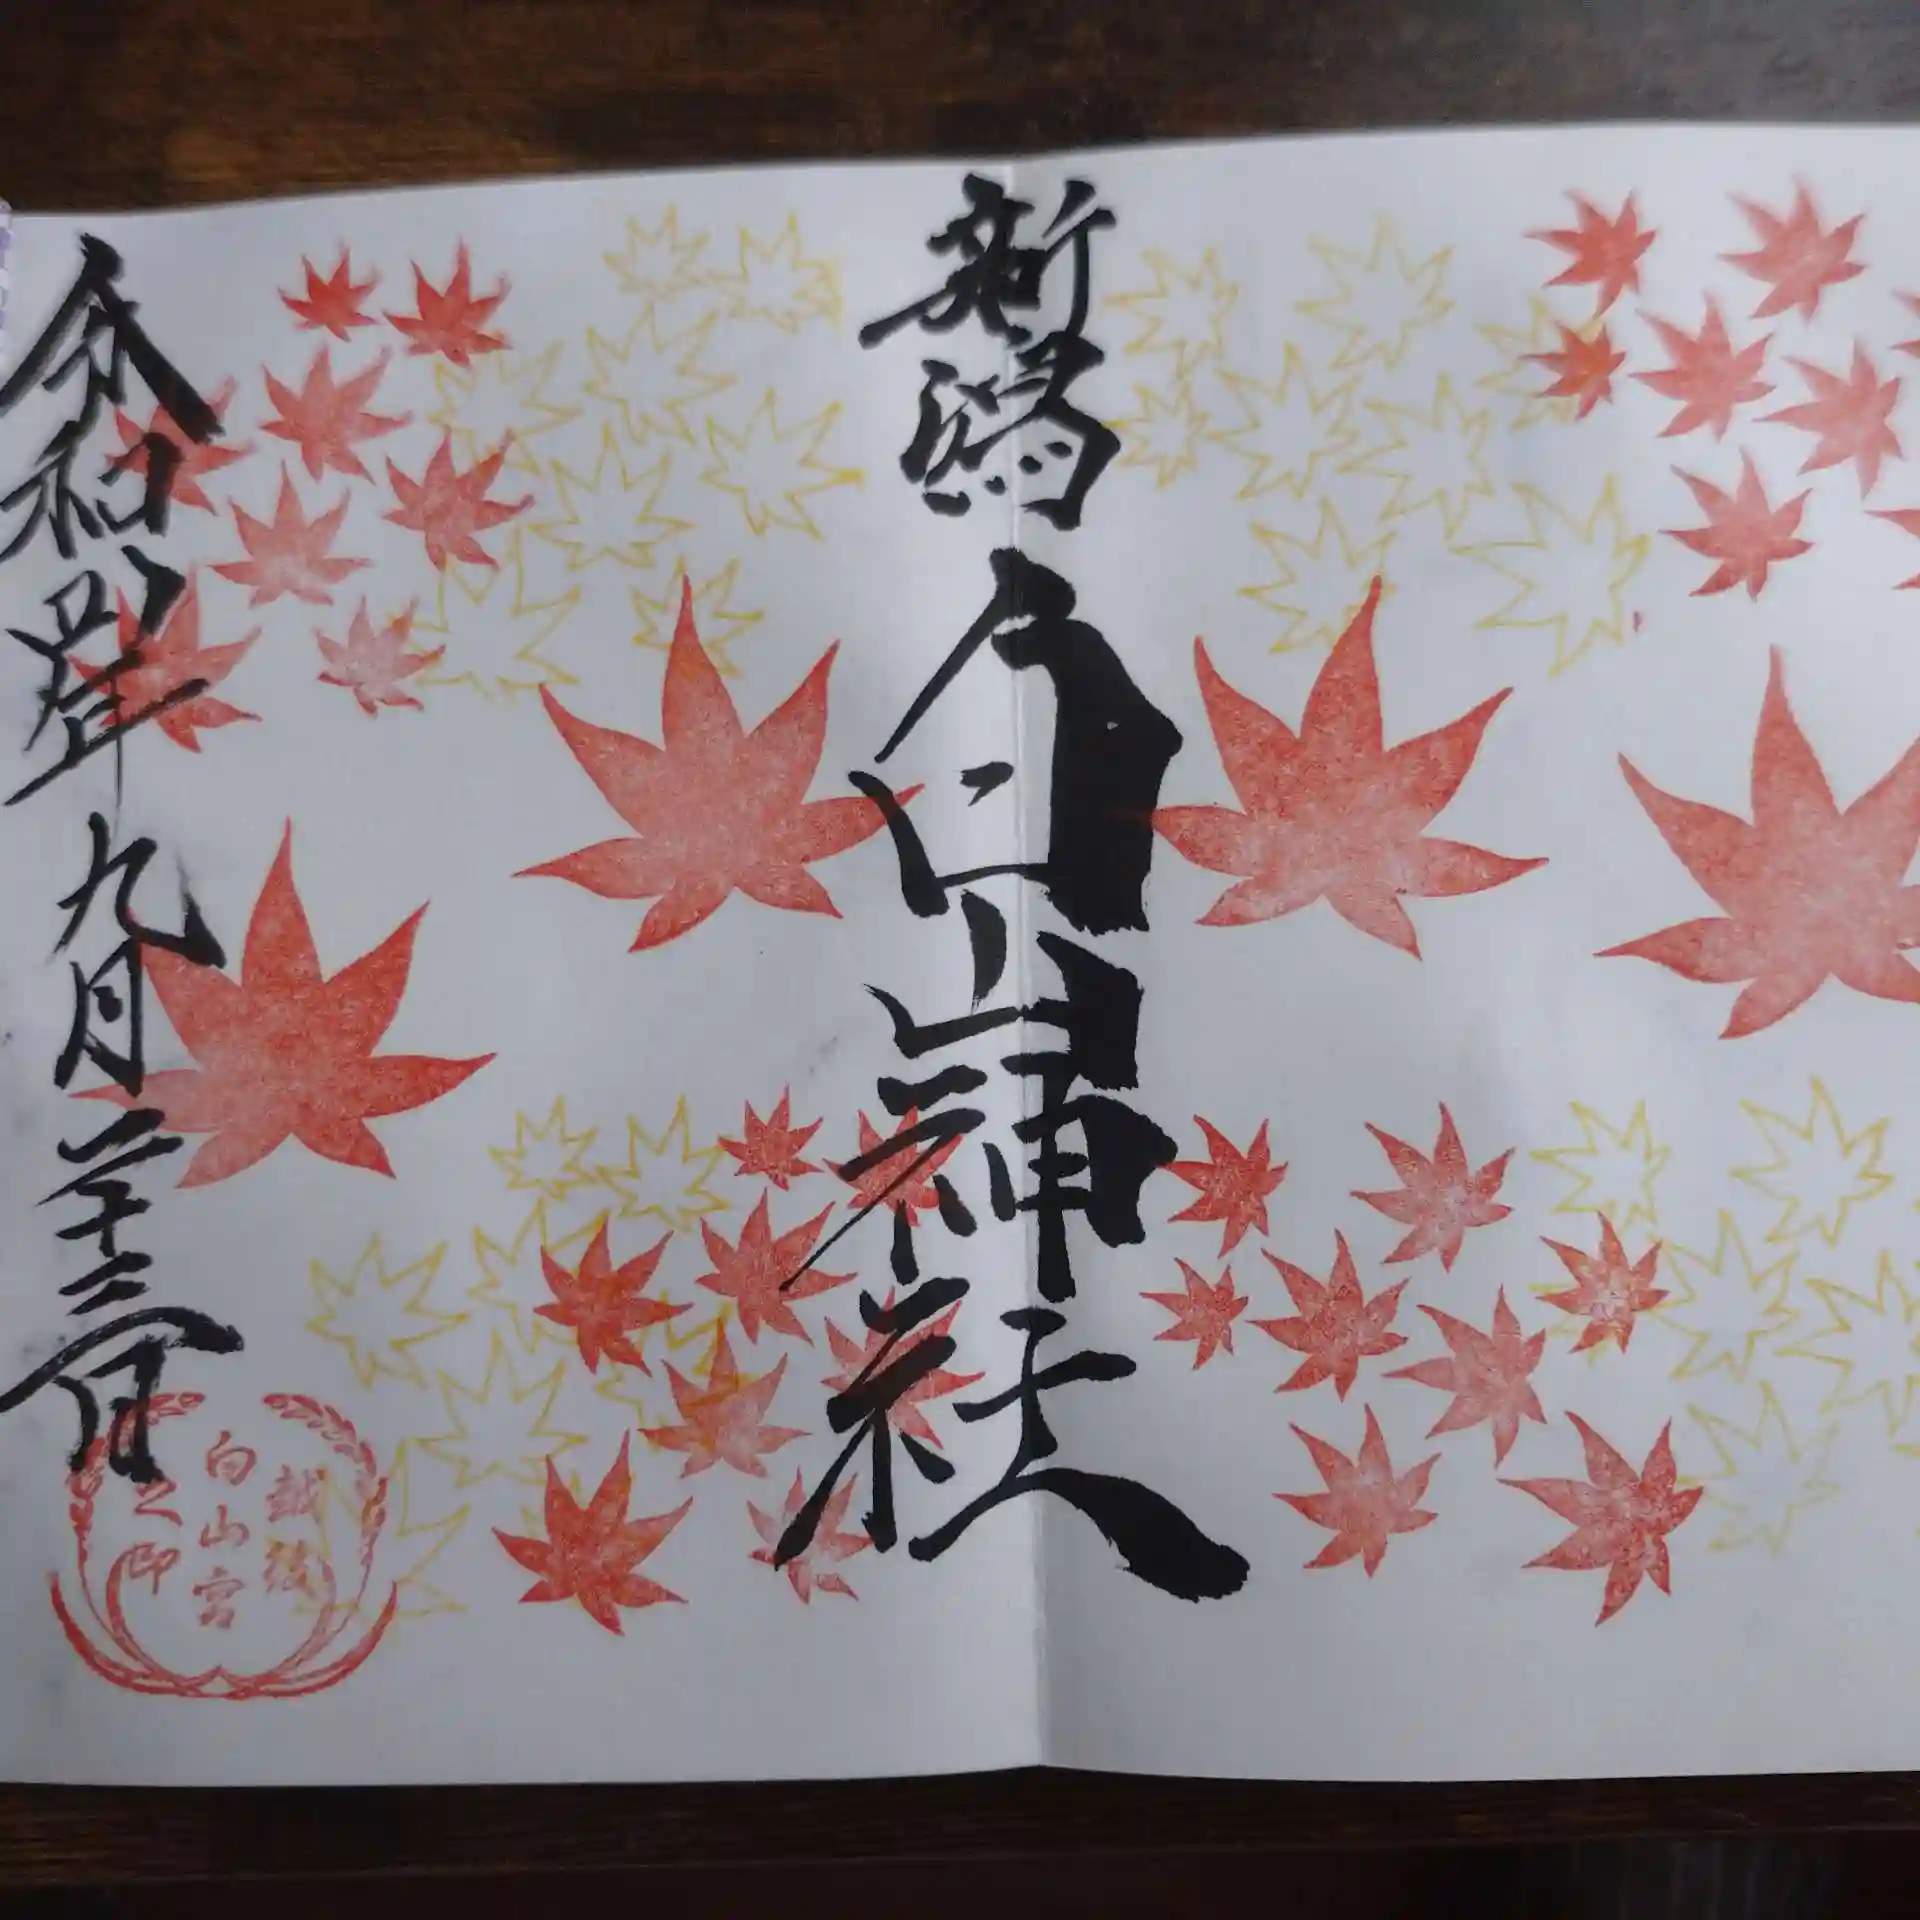 新潟
白山神社
令和四年九月二十三日
越後
白山宮
之印